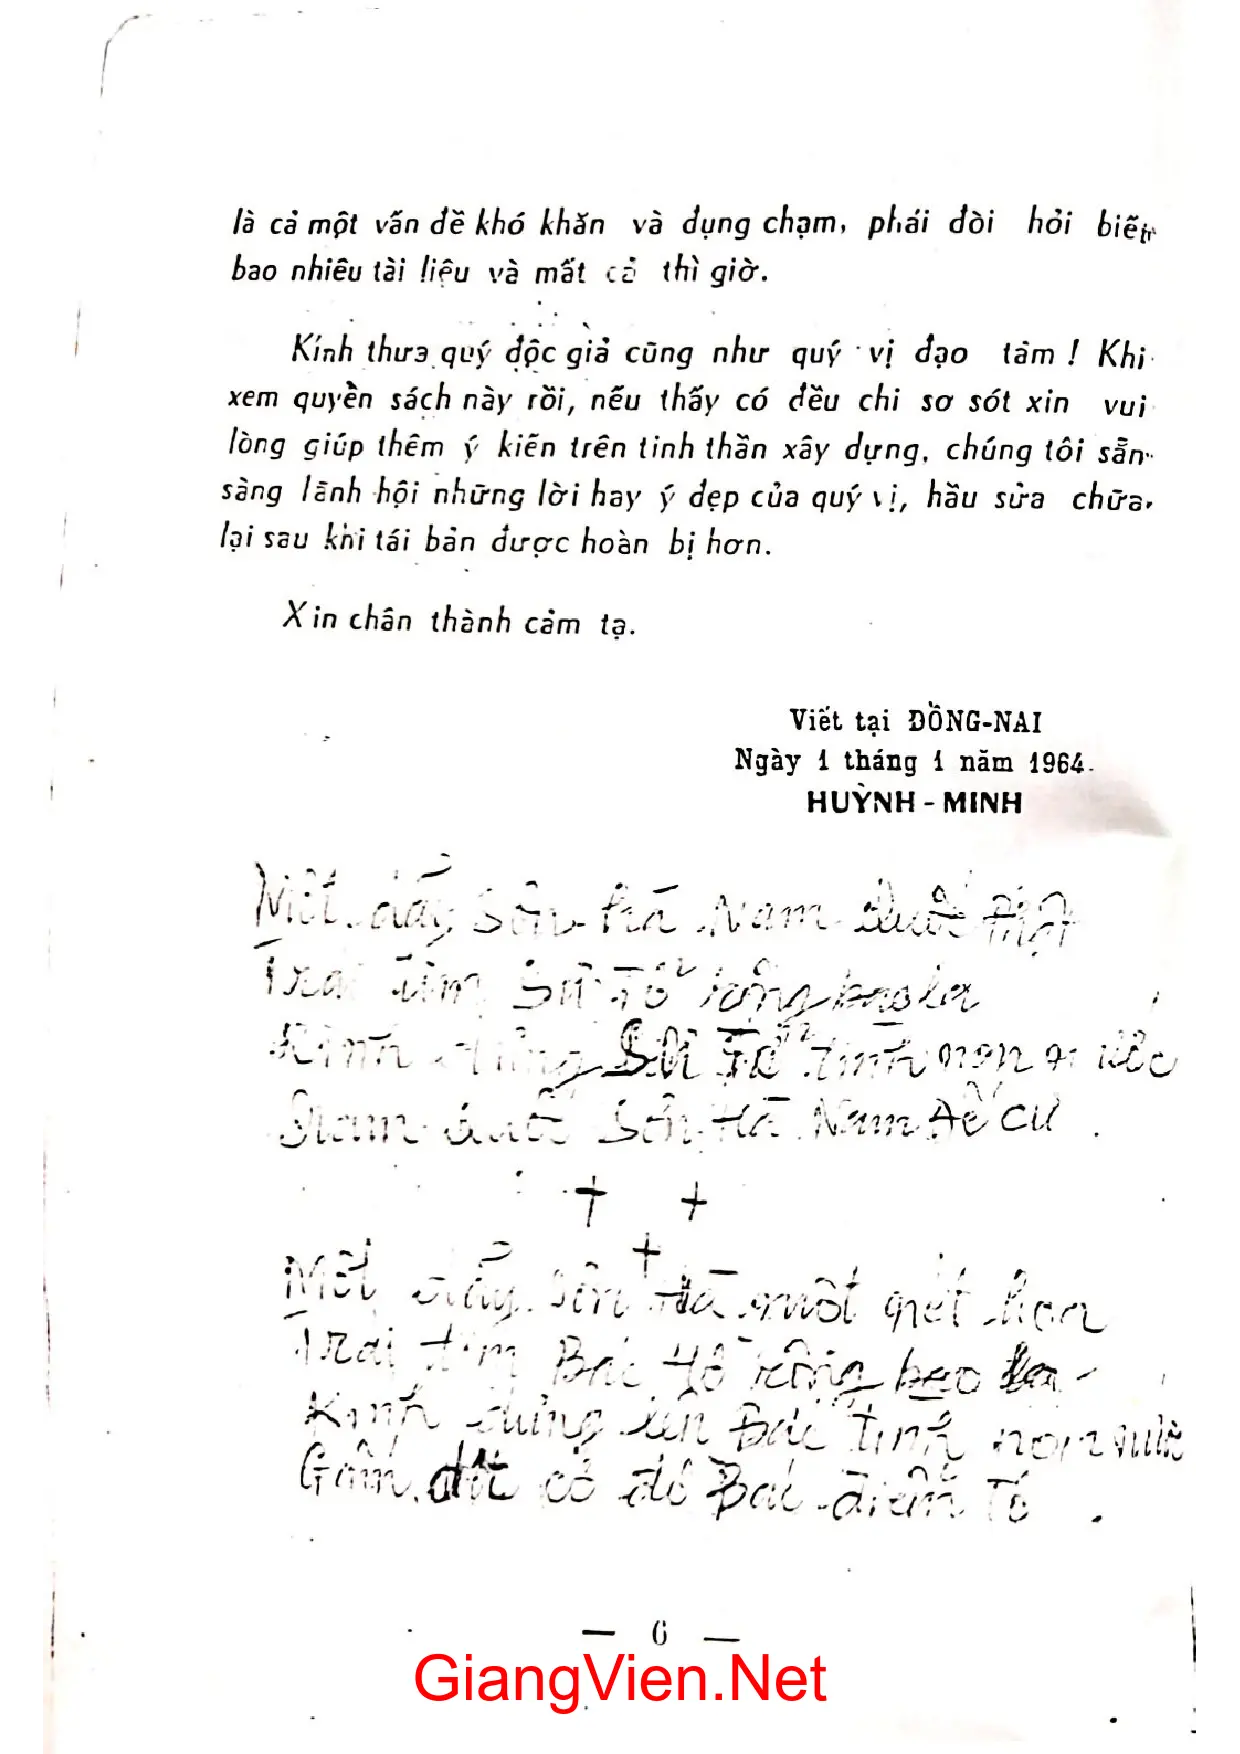 là cả một vấn đề khó khăn và dụng chạm, phải đòi hỏi biết
bao nhiêu tài liệu và mất cả thì giờ.
Kính thưa quý độc giả cũng như quý vị đạo tàm ! Khi
xem quyền sách này rồi, nếu thấy có đều chi sơ sót xin vui
lòng giúp thêm ý kiến trên tinh thần xây dựng, chúng tôi sẵn
sàng lãnh hội những lời hay ý đẹp của quý vị, hầu sửa chữa
lại sau khi tái bản được hoàn bị hơn.
Xin chân thành cảm tạ.
Viết tại ĐỒNG-NAI
Ngày 1 tháng 1 năm 1964.
HUỲNH - MINH
Một dãy Sơn Hà Nam
Trái tim Sư Tổ rộng bao la
Sư Tổ tình non
Sơn Hà Nam Đế cư
Một dãy Sơn Hà một
Trái tim Bác Hồ rộng bao la
Kính dưng lên Bác tình non
Bác
— 6 —
GiangVien.Net